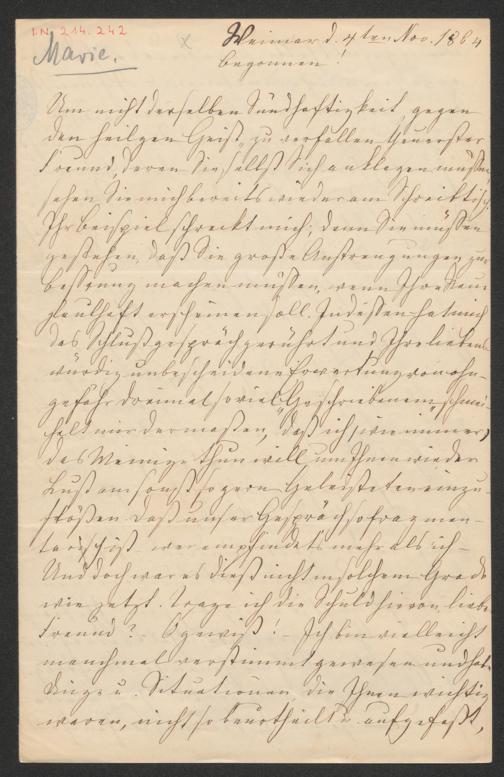 I.N. 214.242
Marie.
x
Weimar d. 4ten Nov. 1864
begonnen!
Um nicht derselben Sündhaftigkeit „gegen
den heilgen Geist“ zu verfallen, theuerster
Freund, deren Sie selbst Sich anklagen müssen
sehen Sie mich bereits wieder am Schreibtisch
Ihr Beispiel schreckt mich; denn Sie müssen
gestehen, daß Sie große Anstrengungen zur
Besserung machen müssen, wenn Ihre Reue
glaubhaft erscheinen soll. Indessen hat mich
das Schlußgespräch gerührt und Ihre liebens-
würdig unbescheidene Erwartung von ohn-
gefähr dreimal soviel „Geschriebenem“ schmei-
chelt mir dermaßen, daß ich, wie immer,
das Meinige thun will, um Ihnen wieder
Lust am sonst so gern Geleisteten einzu-
flößen. Daß unser Gespräch so fragmen-
tarisch ist, wer empfindets mehr als ich –
Und doch war es dieß nicht in solchem Grade
wie jetzt. Trage ich die Schuld hievon, lieber
Freund? O gewiß! – Ich bin vielleicht
manchmal verstimmt gewesen und habe
Dinge u. Situationen, die Ihnen wichtig
waren, nicht so beurtheilt u. aufgefaßt,